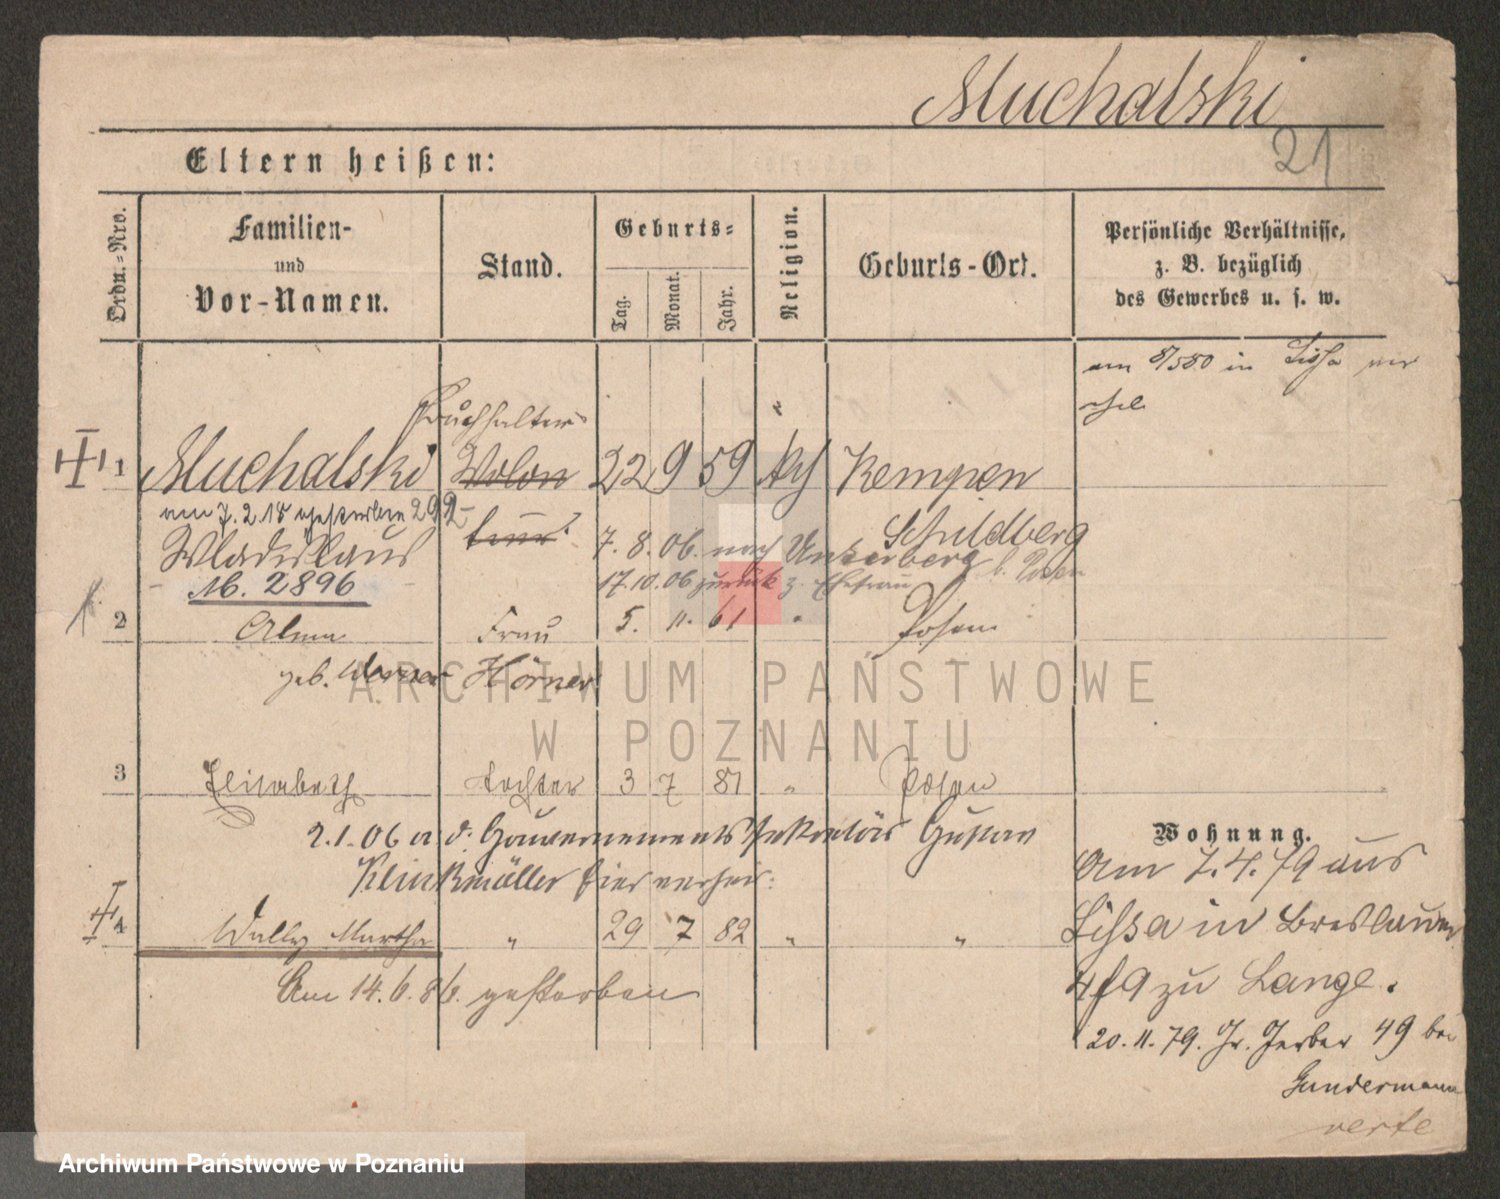 Muchalski
21
Eltern heißen:
Ordn.-Nro.
Familien-
und
Vor-Namen.
Stand.
Geburts-
Tag.
Monat.
Jahr.
Religion.
Geburts-Ort.
Persönliche Verhältnisse,
z. B. bezüglich
des Gewerbes u. s. w.
am 8/5 80 in Lissa ver
Buchhalter
1 Muchalski Volon 22 9 59 kth Kempen
am 7. 2. 18 gestorben 292
teur Schildberg
Wladislaus 7. 8. 06. nach Unterberg b. Posen
Mb. 2896 17. 10. 06 zurück z. Ehefrau
2 Alma Frau 5. 11. 61 " Posen
geb. Werner Hörner
3 Elisabeth Tochter 3 7 81 " Posen
2. 1. 06 a d. Gouvernements Sekretär Gustav
Klinkmüller hier verheir:
4 Wally Martha " 29 7 82 " "
Am 14. 6. 86. gestorben
Wohnung.
Am 7. 4. 79 aus
Lissa in Breslauer
zu Lange.
20. 11. 79. Gr. Gerber 49 bei
Gundermann
verte
ARCHIWUM PAŃSTWOWE
W POZNANIU
Archiwum Państwowe w Poznaniu